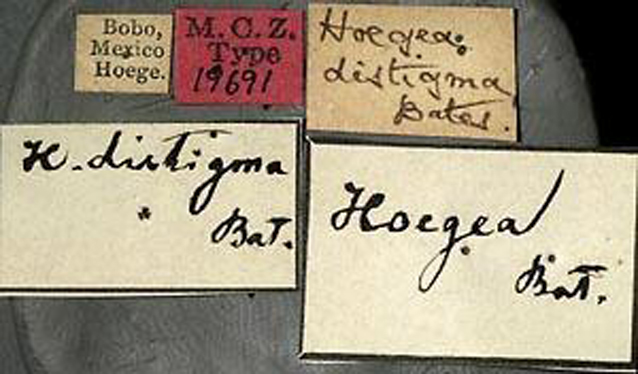 Bobo,
Mexico
Hoege.
M. C. Z.
Type
19691
Hoegea
distigma
Bates.
H. distigma
Bat.
Hoegea
Bat.